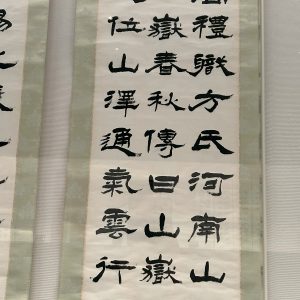 禮職方氏河南山
嶽春秋傳曰山嶽
位山澤通氣雲行
易之